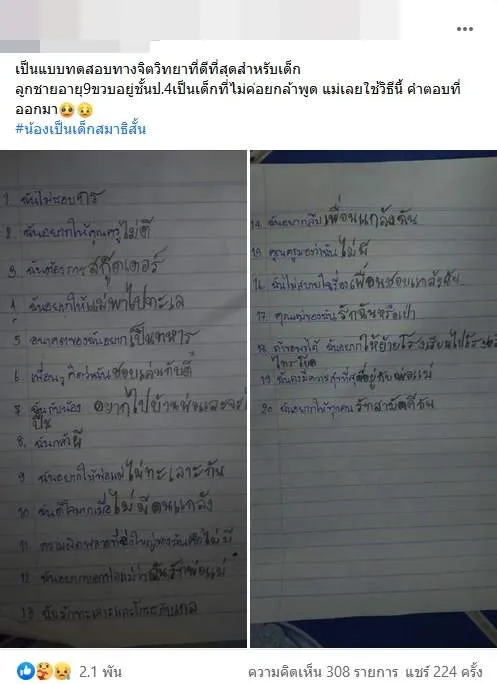 เป็นแบบทดสอบทางจิตวิทยาที่ดีที่สุดสำหรับเด็ก
ลูกชายอายุ9ขวบอยู่ชั้นป.4เป็นเด็กที่ไม่ค่อยกล้าพูด แม่เลยใช้วิธีนี้ คำตอบที่
ออกมา🥺😥
#น้องเป็นเด็กสมาธิสั้น
1. ฉันไม่ชอบ
2. ฉันอยากให้คุณครูไม่ตี
3. ฉันต้องการ สกู๊ตเตอร์
4 ฉันอยากให้แม่พาไปทะเล
5 อนาคตของฉันอยากเป็นทหาร
6 เพื่อนๆคิดว่าฉันชอบเล่นกับตี้
7 ฉันกับน้อง อยากไปบ้านพ่อและ
8. ฉันกลัวผี
9 ฉันอยากให้พ่อแม่ไม่ทะเลาะกัน
10 ฉันดีใจมากเมื่อไม่มีคนแกล้ง
11 ความผิดพลาดที่ยิ่งใหญ่ของฉันคือไม่มี
12 ฉันอยากบอกพ่อแม่ว่าฉันรักพ่อแม่
13 ฉันมักทะเลาะและโกรธกับ
14. ฉันอยากลืมเพื่อนแกล้งฉัน
15. คุณครูมองว่าฉันไม่ดี
16 ฉันไม่สบายใจเรื่องเพื่อนชอบแกล้งฉัน
17 คุณแม่ของฉันรักฉันหรือเปล่า
18 ถ้าขอได้ ฉันอยากให้ย้ายโรงเรียนไปโรงเรียน
ไทรโยค
19 ฉันจะมีความสุขที่สุดที่อยู่กับพ่อแม่
20 ฉันอยากให้ทุกคนรักสามัคคีกัน
2.1 พัน
ความคิดเห็น 308 รายการ แชร์ 224 ครั้ง